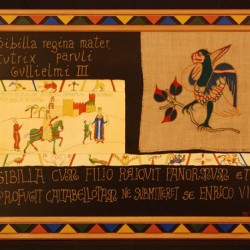 Sibilla regina mater
tutrix parvli
Gvllielmi III
SIBILLA CVM FILIO RELIQVIT PANORMVM ET
PROFVGIT CALTABELLOTAM NE SVBMITTERET SE ENRICO VI